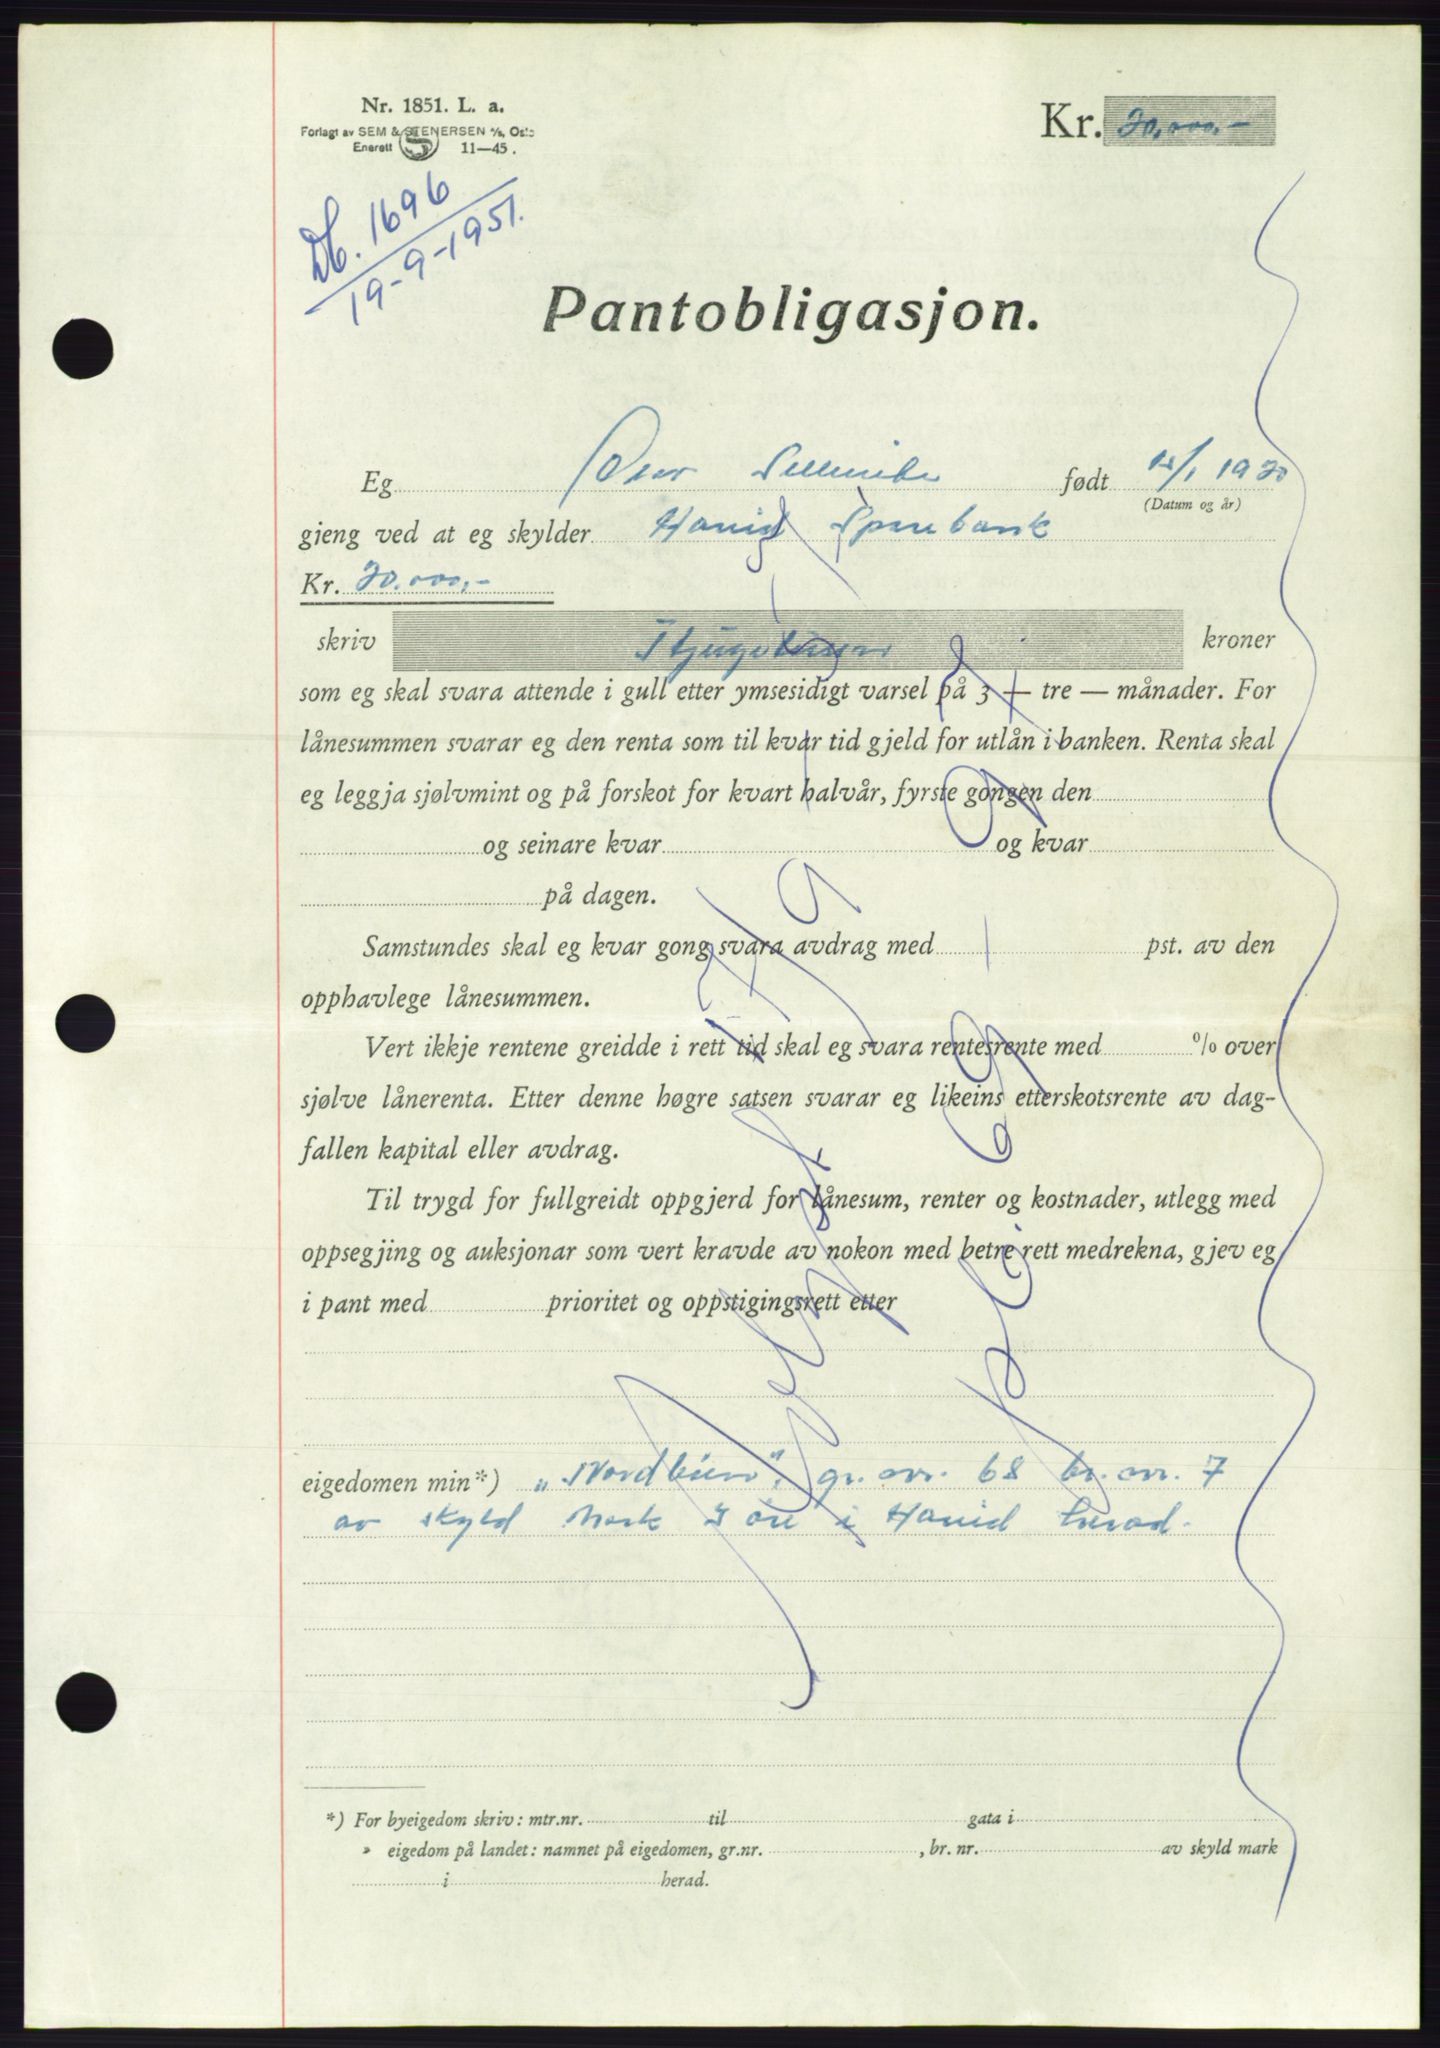 Nr. 1851. L. a.
Forlagt av SEM & STENERSEN A/S, Oslo
Enerett S 11—45.
Kr. 20.000.-
Db. 1696
19-9-1951.
Pantobligasjon.
Eg født 1920
(Datum og år)
gjeng ved at eg skylder Hornid Sparebank
Kr. 20.000,-
skriv Tjugetusen kroner
som eg skal svara attende i gull etter ymsesidigt varsel på 3 — tre — månader. For
lånesummen svarar eg den renta som til kvar tid gjeld for utlån i banken. Renta skal
eg leggja sjølvmint og på forskot for kvart halvår, fyrste gongen den
og seinare kvar og kvar
på dagen.
Samstundes skal eg kvar gong svara avdrag med pst. av den
opphavlege lånesummen.
Vert ikkje rentene greidde i rett tid skal eg svara rentesrente med % over
sjølve lånerenta. Etter denne høgre satsen svarar eg likeins etterskotsrente av dag-
fallen kapital eller avdrag.
Til trygd for fullgreidt oppgjerd for lånesum, renter og kostnader, utlegg med
oppsegjing og auksjonar som vert kravde av nokon med betre rett medrekna, gjev eg
i pant med prioritet og oppstigingsrett etter
eigedomen min*) gr. nr. 68 br. nr. 7
av skyld mark øre i Hornid herad.
*) For byeigedom skriv: mtr.nr. til gata i
» eigedom på landet: namnet på eigedomen, gr.nr. , br. nr. av skyld mark
i herad.